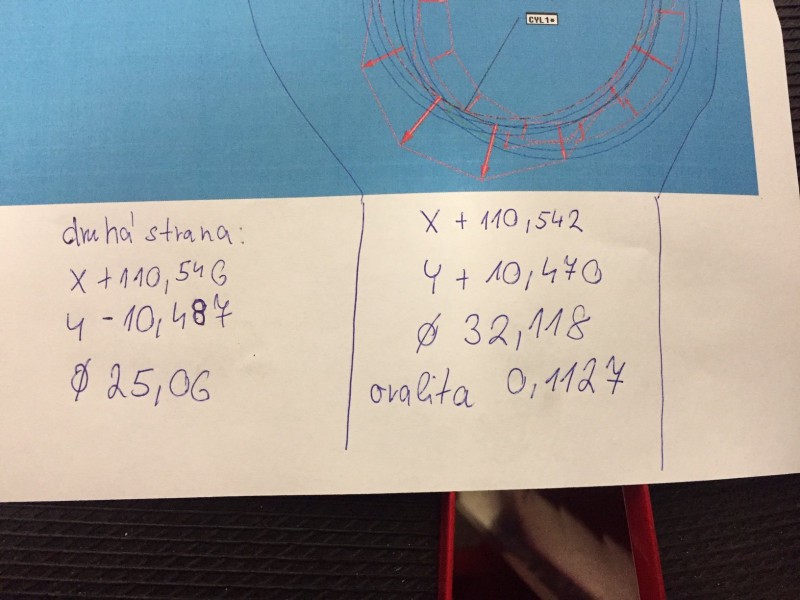 CYL1
druhá strana:
X + 110,546
Y - 10,487
Ø 25,06
X + 110,542
Y + 10,470
Ø 32,118
ovalita 0,1127